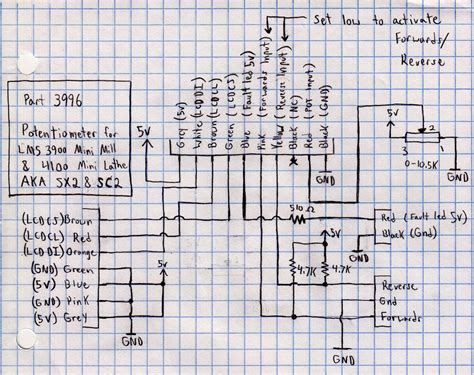 Set low to activate
Forwards/
Reverse
Part 3996
Potentiometer for
LMS 3900 Mini Mill
& 4100 Mini Lathe
AKA SX2 & SC2
5V
Grey (5v)
White (LCDDI)
Brown (LCDCL)
Green (LCDCS)
Blue (Fault led 5v)
Pink (Forwards Input)
Yellow (Reverse Input)
Black (NC)
Red (POT Input)
Black (GND)
GND
5V
2
3
1
0-10.5K
(LCDCS) Brown
(LCDCL) Red
(LCDDI) Orange
(GND) Green
(5V) Blue
(GND) Pink
(5V) Grey
5V
GND
510Ω
5V
4.7K
4.7K
Red (Fault led 5v)
Black (Gnd)
Reverse
Gnd
Forwards
GND